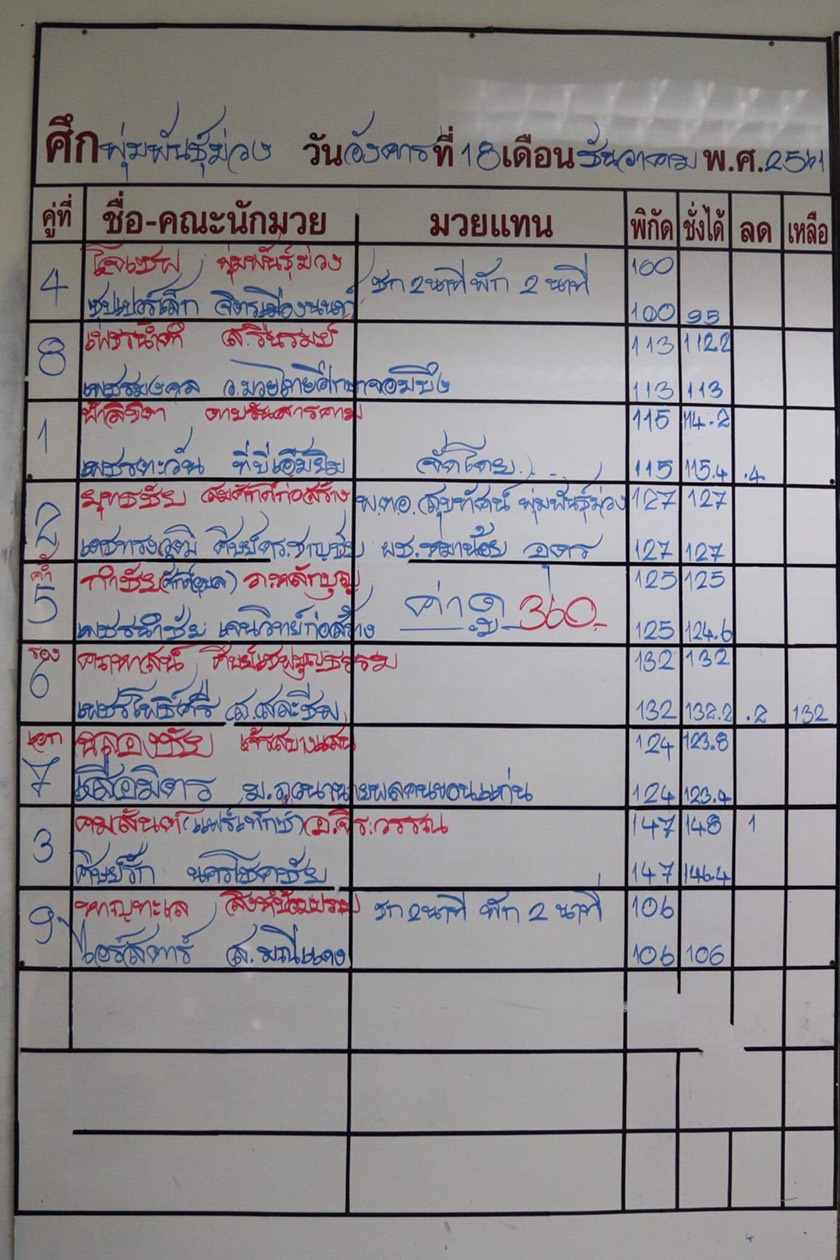 ศึก พุ่มพันธุ์ม่วง วัน อังคาร ที่ 18 เดือน ธันวาคม พ.ศ. 2561
คู่ที่ ชื่อ-คณะนักมวย มวยแทน พิกัด ชั่งได้ ลด เหลือ
4 โจเซฟ พุ่มพันธุ์ม่วง ชก 2 นาที พัก 2 นาที 100
ซุปเปอร์เล็ก จิตรเมืองนนท์ 100 95
8 ส.วินรมย์ 113 112.2
เพชรมงคล ว.มวยไทยศึกษาจอมบึง 113 113
1 ดาบรันสารคาม 115 114.2
เพชรตะวัน ทีบีเอ็มยิม จัดโดย... 115 115.4 .4
2 ยุทธชัย สมศักดิ์ก่อสร้าง พ.ต.อ.สุขทัศน์ พุ่มพันธุ์ม่วง 127 127
เดชทรงวุฒิ ศิษย์ดร.ชาญชัย ผช.หมาน้อย อุดร 127 127
ค้ำ 5 กำชัย อ.หลักบุญ ค่าดู 360.- 125 125
เพชรนำชัย เคนวิทย์ก่อสร้าง 125 124.6
รอง 6 132 132
เพชรโพธิ์ศรี ส.สละชีพ 132 132.2 .2 132
เอก 7 ฉลองชัย เจ้รสบางแสน 124 123.8
เสือมิตร 124 123.4
3 คมสันต์ (แฟร์เท็กซ์) อ.จิระวรรณ 147 148 1
ศิษย์รัก นครโชคชัย 147 146.4
9 หาญทะเล ชก 2 นาที พัก 2 นาที 106
แอร์สตาร์ ส.มณีแดง 106 106